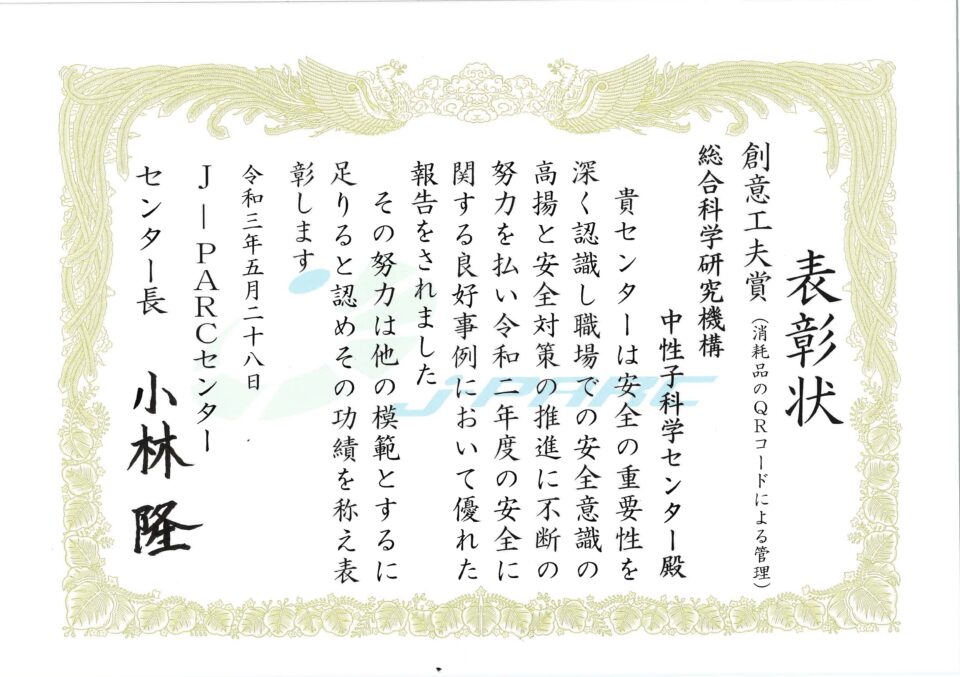 表彰状
創意工夫賞（消耗品のQRコードによる管理）
総合科学研究機構
中性子科学センター殿
貴センターは安全の重要性を
深く認識し職場での安全意識の
高揚と安全対策の推進に不断の
努力を払い令和二年度の安全に
関する良好事例において優れた
報告をされました
その努力は他の模範とするに
足りると認めその功績を称え表
彰します
令和三年五月二十八日
J－PARCセンター
センター長　小林　隆
J-PARC